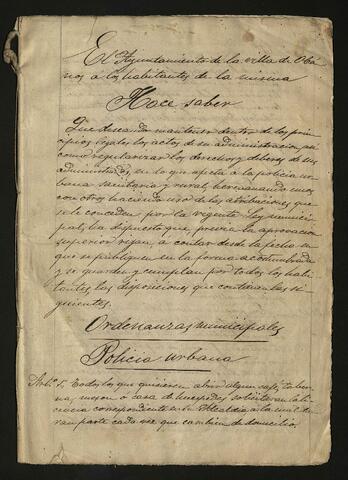 El Ayuntamiento de la villa de Oba
nos á los habitantes de la misma
Hace saber
Que deseando mantener dentro de los prin
cipios legales los actos de su administracion, asi
como regularizar los derechos y deberes de sus
administrados, en lo que afecta á la policia ur
bana sanitaria y rural, hermanando unos
con otros haciendo uso de las atribuciones que
se le conceden por la vigente Ley munici
pal, ha dispuesto que previa la aprovacion
superior rijan, a contar desde la fecha en
que se publiquen en la forma acostumbrada
y se guarden y cumplan por todos los habi
tantes las disposiciones que contienen las si
guientes.
Ordenanzas municipales
Policia urbana
Artº 1º Todos los que quisieren abrir algun café, taber
na, meson ó casa de huespedes solicitaran la li
cencia correspondiente en la Alcaldia a la cual da
ran parte cada vez que cambien de domicilio.